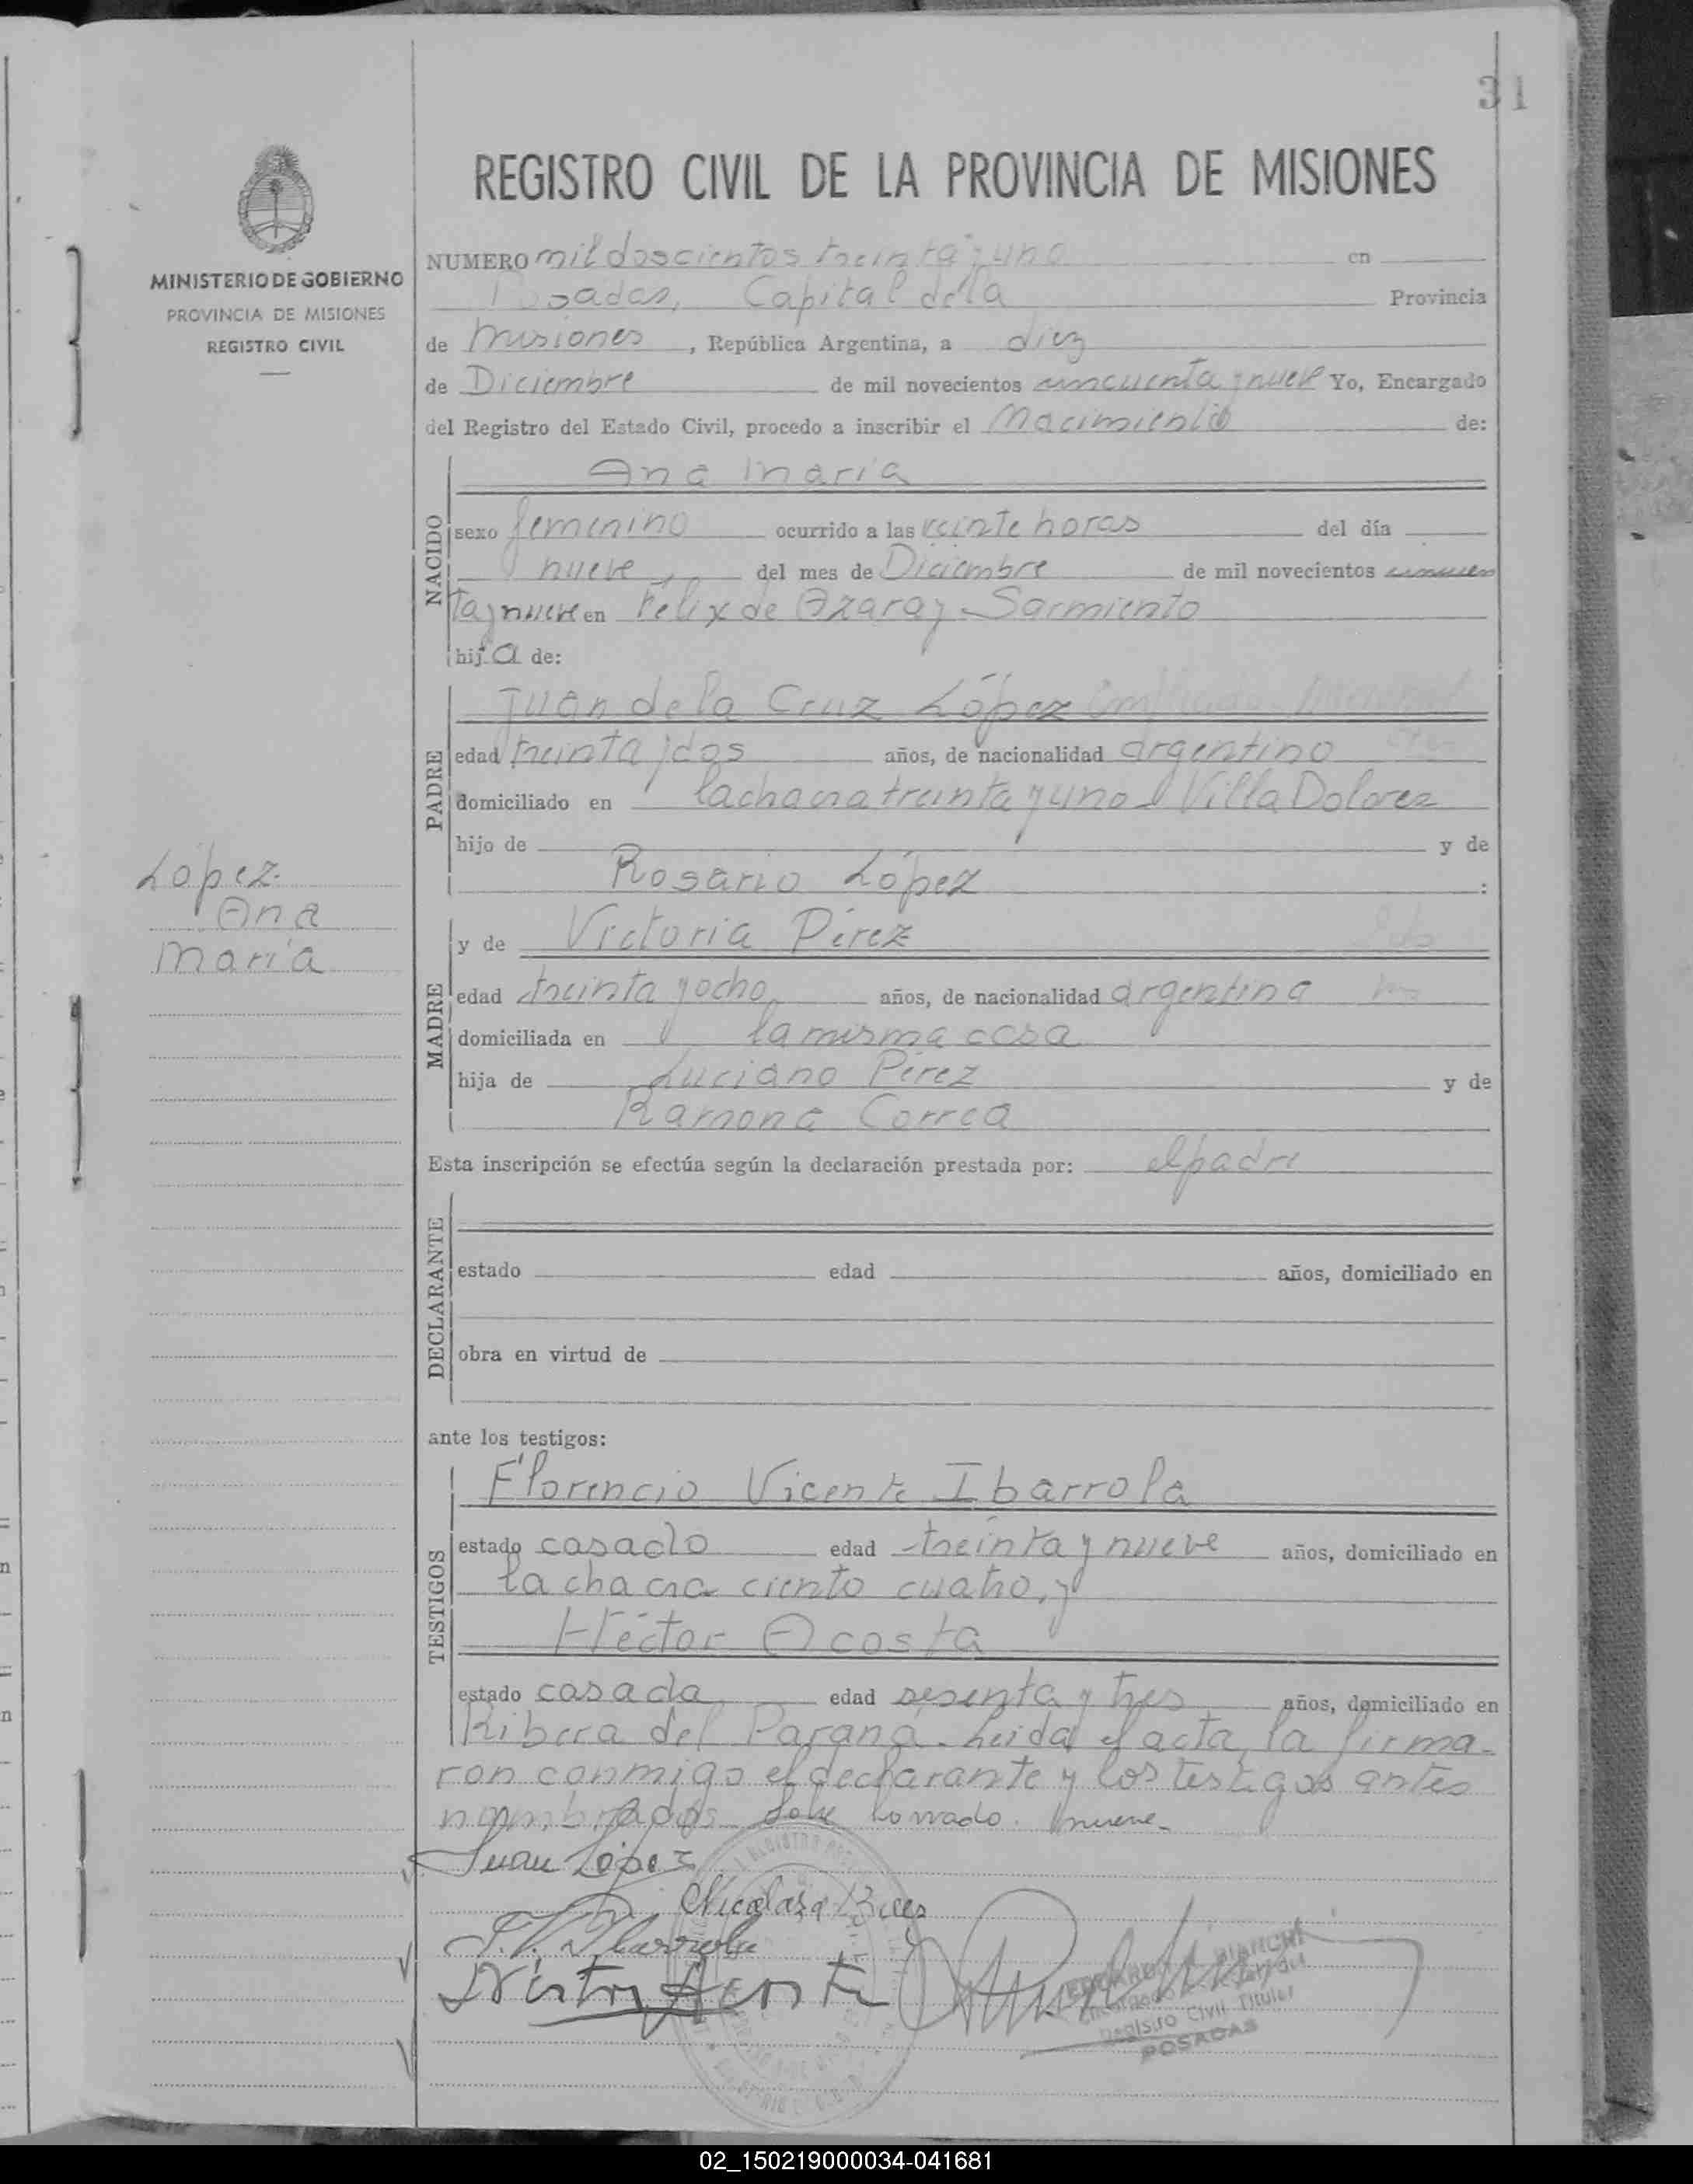 31
REGISTRO CIVIL DE LA PROVINCIA DE MISIONES
MINISTERIO DE GOBIERNO
PROVINCIA DE MISIONES
REGISTRO CIVIL
NUMERO mil doscientos treinta y uno en
Posadas, Capital de la Provincia
de Misiones, República Argentina, a diez
de Diciembre de mil novecientos cincuenta y nueve Yo, Encargado
del Registro del Estado Civil, procedo a inscribir el Nacimiento de:
NACIDO
Ana María
sexo femenino ocurrido a las veinte horas del día
nueve, del mes de Diciembre de mil novecientos cincuen
ta y nueve en Félix de Azara y Sarmiento
hija de:
PADRE
Juan de la Cruz López
edad treinta y dos años, de nacionalidad argentino
domiciliado en la chacra treinta y uno Villa Dolores
hijo de y de
Rosario López :
López
Ana
María
MADRE
y de Victoria Pérez
edad treinta y ocho, años, de nacionalidad argentina
domiciliada en la misma casa
hija de Luciano Pérez y de
Ramona Correa
Esta inscripción se efectúa según la declaración prestada por: el padre
DECLARANTE
estado edad años, domiciliado en
obra en virtud de
ante los testigos:
TESTIGOS
Florencio Vicente Ibarrola
estado casado edad treinta y nueve años, domiciliado en
la chacra ciento cuatro, y
Héctor Acosta
estado casada, edad sesenta y tres años, domiciliado en
Ribera del Paraná. Leida el acta, la firma-
ron conmigo el declarante y los testigos antes
nombrados. Sobe borrado. nueve-
Juan López
F.V. Ibarrola
Acosta
BIANCHI
Registro Civil Titular
POSADAS
02_150219000034-041681